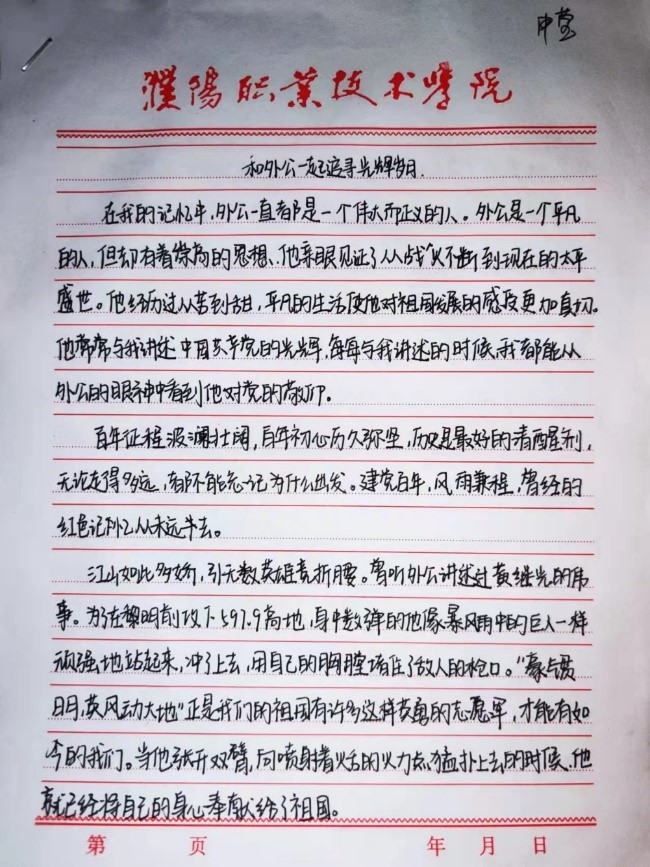 申莹
濮陽职业技术学院
和外公一起追寻光辉岁日.
在我的记忆中,外公一直都是一个伟大而正义的人。外公是一个平凡
的人,但却有着崇高的思想、他亲眼见证了从战火不断到现在的太平
盛世。他经历过从苦到甜,平凡的生活使他对祖国发展的感反更加真切.
他常常与我讲述中国共产党的光辉,每每与我讲述的时候,我都能从
外公的眼神中看到他对党的敬仰。
百年征程波澜壮阔,百年初心历久弥坚,历史是最好的清醒剂,
无论走得多远,都不能忘记为什么出发。建党百年,风雨兼程,曾经的
红色记忆从未远失去。
江山如此多娇,引无数英雄竞折腰。曾听外公讲述过黄继光的伟
事。为了在黎明前攻下597.9高地,身中数弹的他像暴风雨中的巨人一样
顽强地站起来,冲了上去,用自己的胸膛堵住了敌人的枪口。"豪与贯
日月,英风动大地"正是我们的祖国有许多这样英勇的志愿军,才能有如
今的我们。当他张开双臂,向喷射着火舌的火力点猛扑上去的时候、他
就已经将自己的身心奉献给了祖国。
第 页 年 月 日